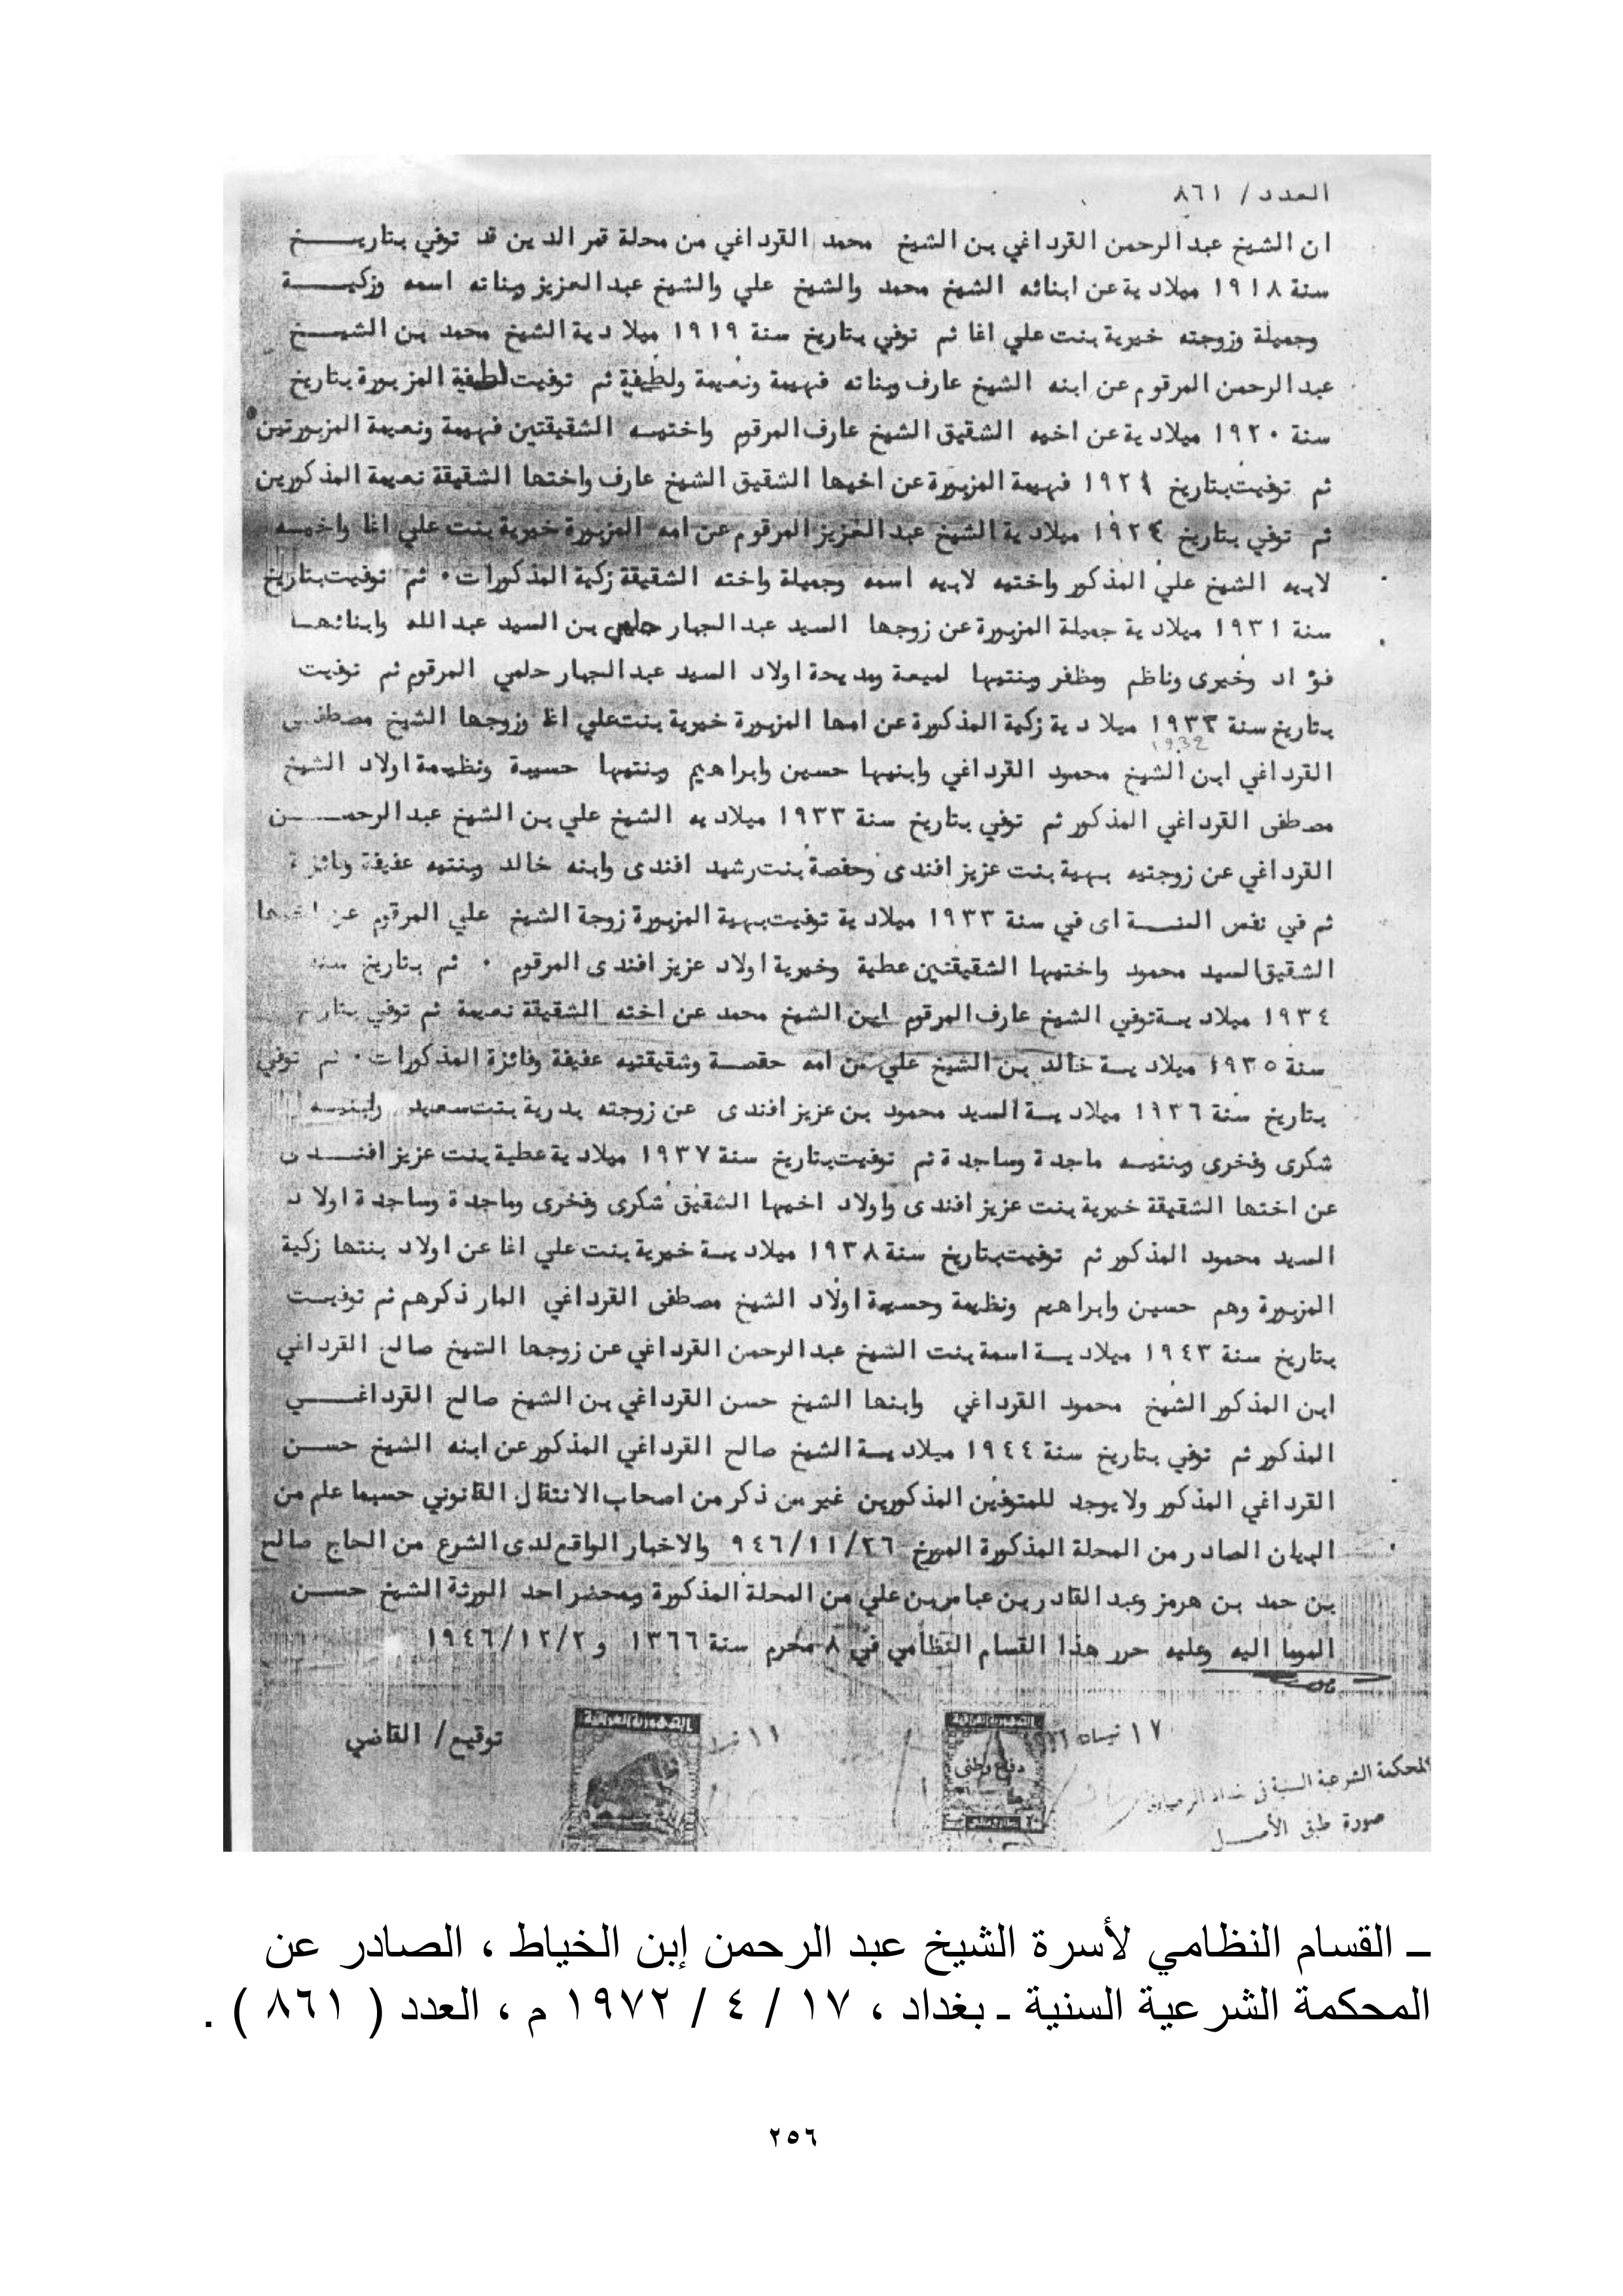 العدد / ٨٦١
ان الشيخ عبدالرحمن القرداغي بن الشيخ محمد القرداغي من محلة قمرالدين قد توفي بتاريـــخ
سنة ١٩١٨ ميلادية عن ابنائه الشيخ محمد والشيخ علي والشيخ عبدالعزيز وبناته اسمه وزكيـــة
وجميلة وزوجته خيرية بنت علي اغا ثم توفي بتاريخ سنة ١٩١٩ ميلادية الشيخ محمد بن الشيـــخ
عبدالرحمن المرقوم عن ابنه الشيخ عارف وبناته فهيمة ونعيمة ولطيفة ثم توفيت لطيفة المزبورة بتاريخ
سنة ١٩٢٠ ميلادية عن اخيه الشقيق الشيخ عارف المرقوم واختيـه الشقيقتين فهيمة ونعيمة المزبورتين
ثم توفيت بتاريخ ١٩٢١ فهيمة المزبورة عن اخيها الشقيق الشيخ عارف واختها الشقيقة نعيمة المذكورين
ثم توفي بتاريخ ١٩٢٤ ميلادية الشيخ عبدالعزيز المرقوم عن امه المزبورة خيرية بنت علي اغا واخيـه
لابيه الشيخ علي المذكور واختيه لابيه اسمه وجميلة واخته الشقيقة زكية المذكورات ٠ ثم توفيت بتاريخ
سنة ١٩٣١ ميلادية جميلة المزبورة عن زوجها السيد عبدالجبار حلمي بن السيد عبدالله وابنائهـا
فؤاد وخيرى وناظم ومظفر وبنتيها لميعة ومديحة اولاد السيد عبدالجبار حلمي المرقوم ثم توفيت
بتاريخ سنة ١٩٣٣ ميلادية زكية المذكورة عن امها المزبورة خيرية بنت علي اغا وزوجها الشيخ مصطفـى
١٩٣٢
القرداغي ابن الشيخ محمود القرداغي وابنيها حسين وابراهيم وبنتيها حسيبة ونظيمة اولاد الشيخ
مصطفى القرداغي المذكور ثم توفي بتاريخ سنة ١٩٣٣ ميلاديه الشيخ علي بن الشيخ عبدالرحمـــن
القرداغي عن زوجتيه بهية بنت عزيز افندى وحفصة بنت رشيد افندى وابنه خالد وبنتيه عفيفة وفائزة
ثم في نفس السنـــة اى في سنة ١٩٣٣ ميلادية توفيت بهية المزبورة زوجة الشيخ علي المرقوم عن اخيها
الشقيق السيد محمود واختيها الشقيقتين عطية وخيرية اولاد عزيز افندى المرقوم ٠ ثم بتاريخ سنة
١٩٣٤ ميلاديـة توفي الشيخ عارف المرقوم ابن الشيخ محمد عن اخته الشقيقة نعيمة ثم توفي بتاريخ
سنة ١٩٣٥ ميلاديـة خالد بن الشيخ علي عن امه حفصـة وشقيقتيه عفيفة وفائزة المذكورات ٠ ثم توفي
بتاريخ سنة ١٩٣٦ ميلاديـة السيد محمود بن عزيز افندى عن زوجته بدرية بنت سعيد وابنيـه
شكرى وفخرى وبنتيـه ماجدة وساجدة ثم توفيت بتاريخ سنة ١٩٣٧ ميلادية عطية بنت عزيز افنـدى
عن اختها الشقيقة خيرية بنت عزيز افندى واولاد اخيها الشقيق شكرى وفخرى وماجدة وساجدة اولاد
السيد محمود المذكور ثم توفيت بتاريخ سنة ١٩٣٨ ميلاديـة خيرية بنت علي اغا عن اولاد بنتها زكية
المزبورة وهم حسين وابراهيم ونظيمة وحسيبة اولاد الشيخ مصطفى القرداغي المار ذكرهم ثم توفيـت
بتاريخ سنة ١٩٤٣ ميلاديـة اسمة بنت الشيخ عبدالرحمن القرداغي عن زوجها الشيخ صالح القرداغي
ابن المذكور الشيخ محمود القرداغي وابنها الشيخ حسن القرداغي بن الشيخ صالح القرداغـــي
المذكور ثم توفي بتاريخ سنة ١٩٤٤ ميلاديـة الشيخ صالح القرداغي المذكور عن ابنه الشيخ حســن
القرداغي المذكور ولا يوجد للمتوفين المذكورين غير من ذكر من اصحاب الانتقال القانوني حسبما علم من
البيان الصادر من المحلة المذكورة المورخ ٩٤٦/١١/٢٦ والاخبار الواقع لدى الشرع من الحاج صالح
بن حمد بن هرمز وعبدالقادر بن عباس بن علي من المحلة المذكورة وبمحضر احد الورثة الشيخ حســن
الموما اليه وعليه حرر هذا القسام النظامي في ٨ محرم سنة ١٣٦٦ و ١٩٤٦/١٢/٢
١٧ نيسان
١١
توقيع / القاضي
الجمهورية العراقية
الجمهورية العراقية
دفاع وطني
المحكمة الشرعية السنية في بغداد الرصافة
صورة طبق الأصـــل
ــ القسام النظامي لأسرة الشيخ عبد الرحمن إبن الخياط ، الصادر عن
المحكمة الشرعية السنية ـ بغداد ، ١٧ / ٤ / ١٩٧٢ م ، العدد ( ٨٦١ ) .
٢٥٦